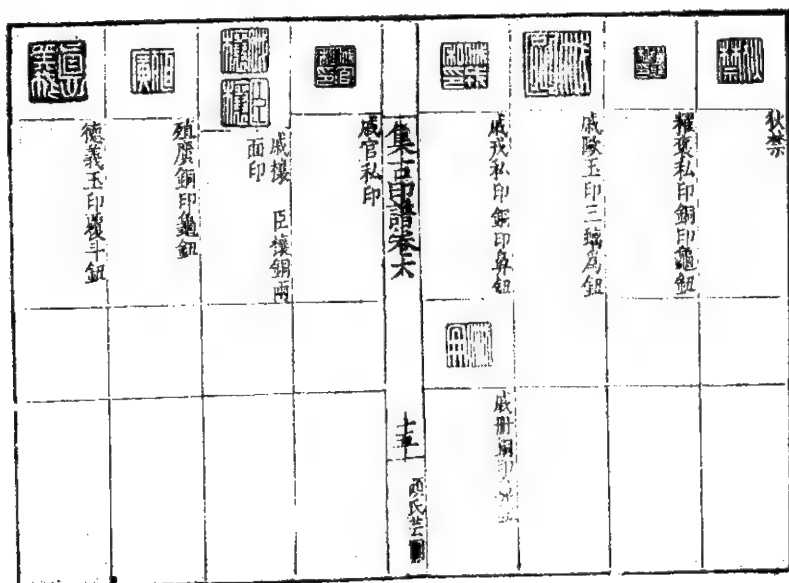 狄禁
耀襃私印銅印龜鈕
戚歐玉印三螭為鈕
戚戎私印銅印鼻鈕
戚冊銅印
集古印譜卷六
十五
顧氏芸閣
戚官私印
戚攘 臣攘銅兩
面印
殖廣銅印龜鈕
德義玉印覆斗鈕